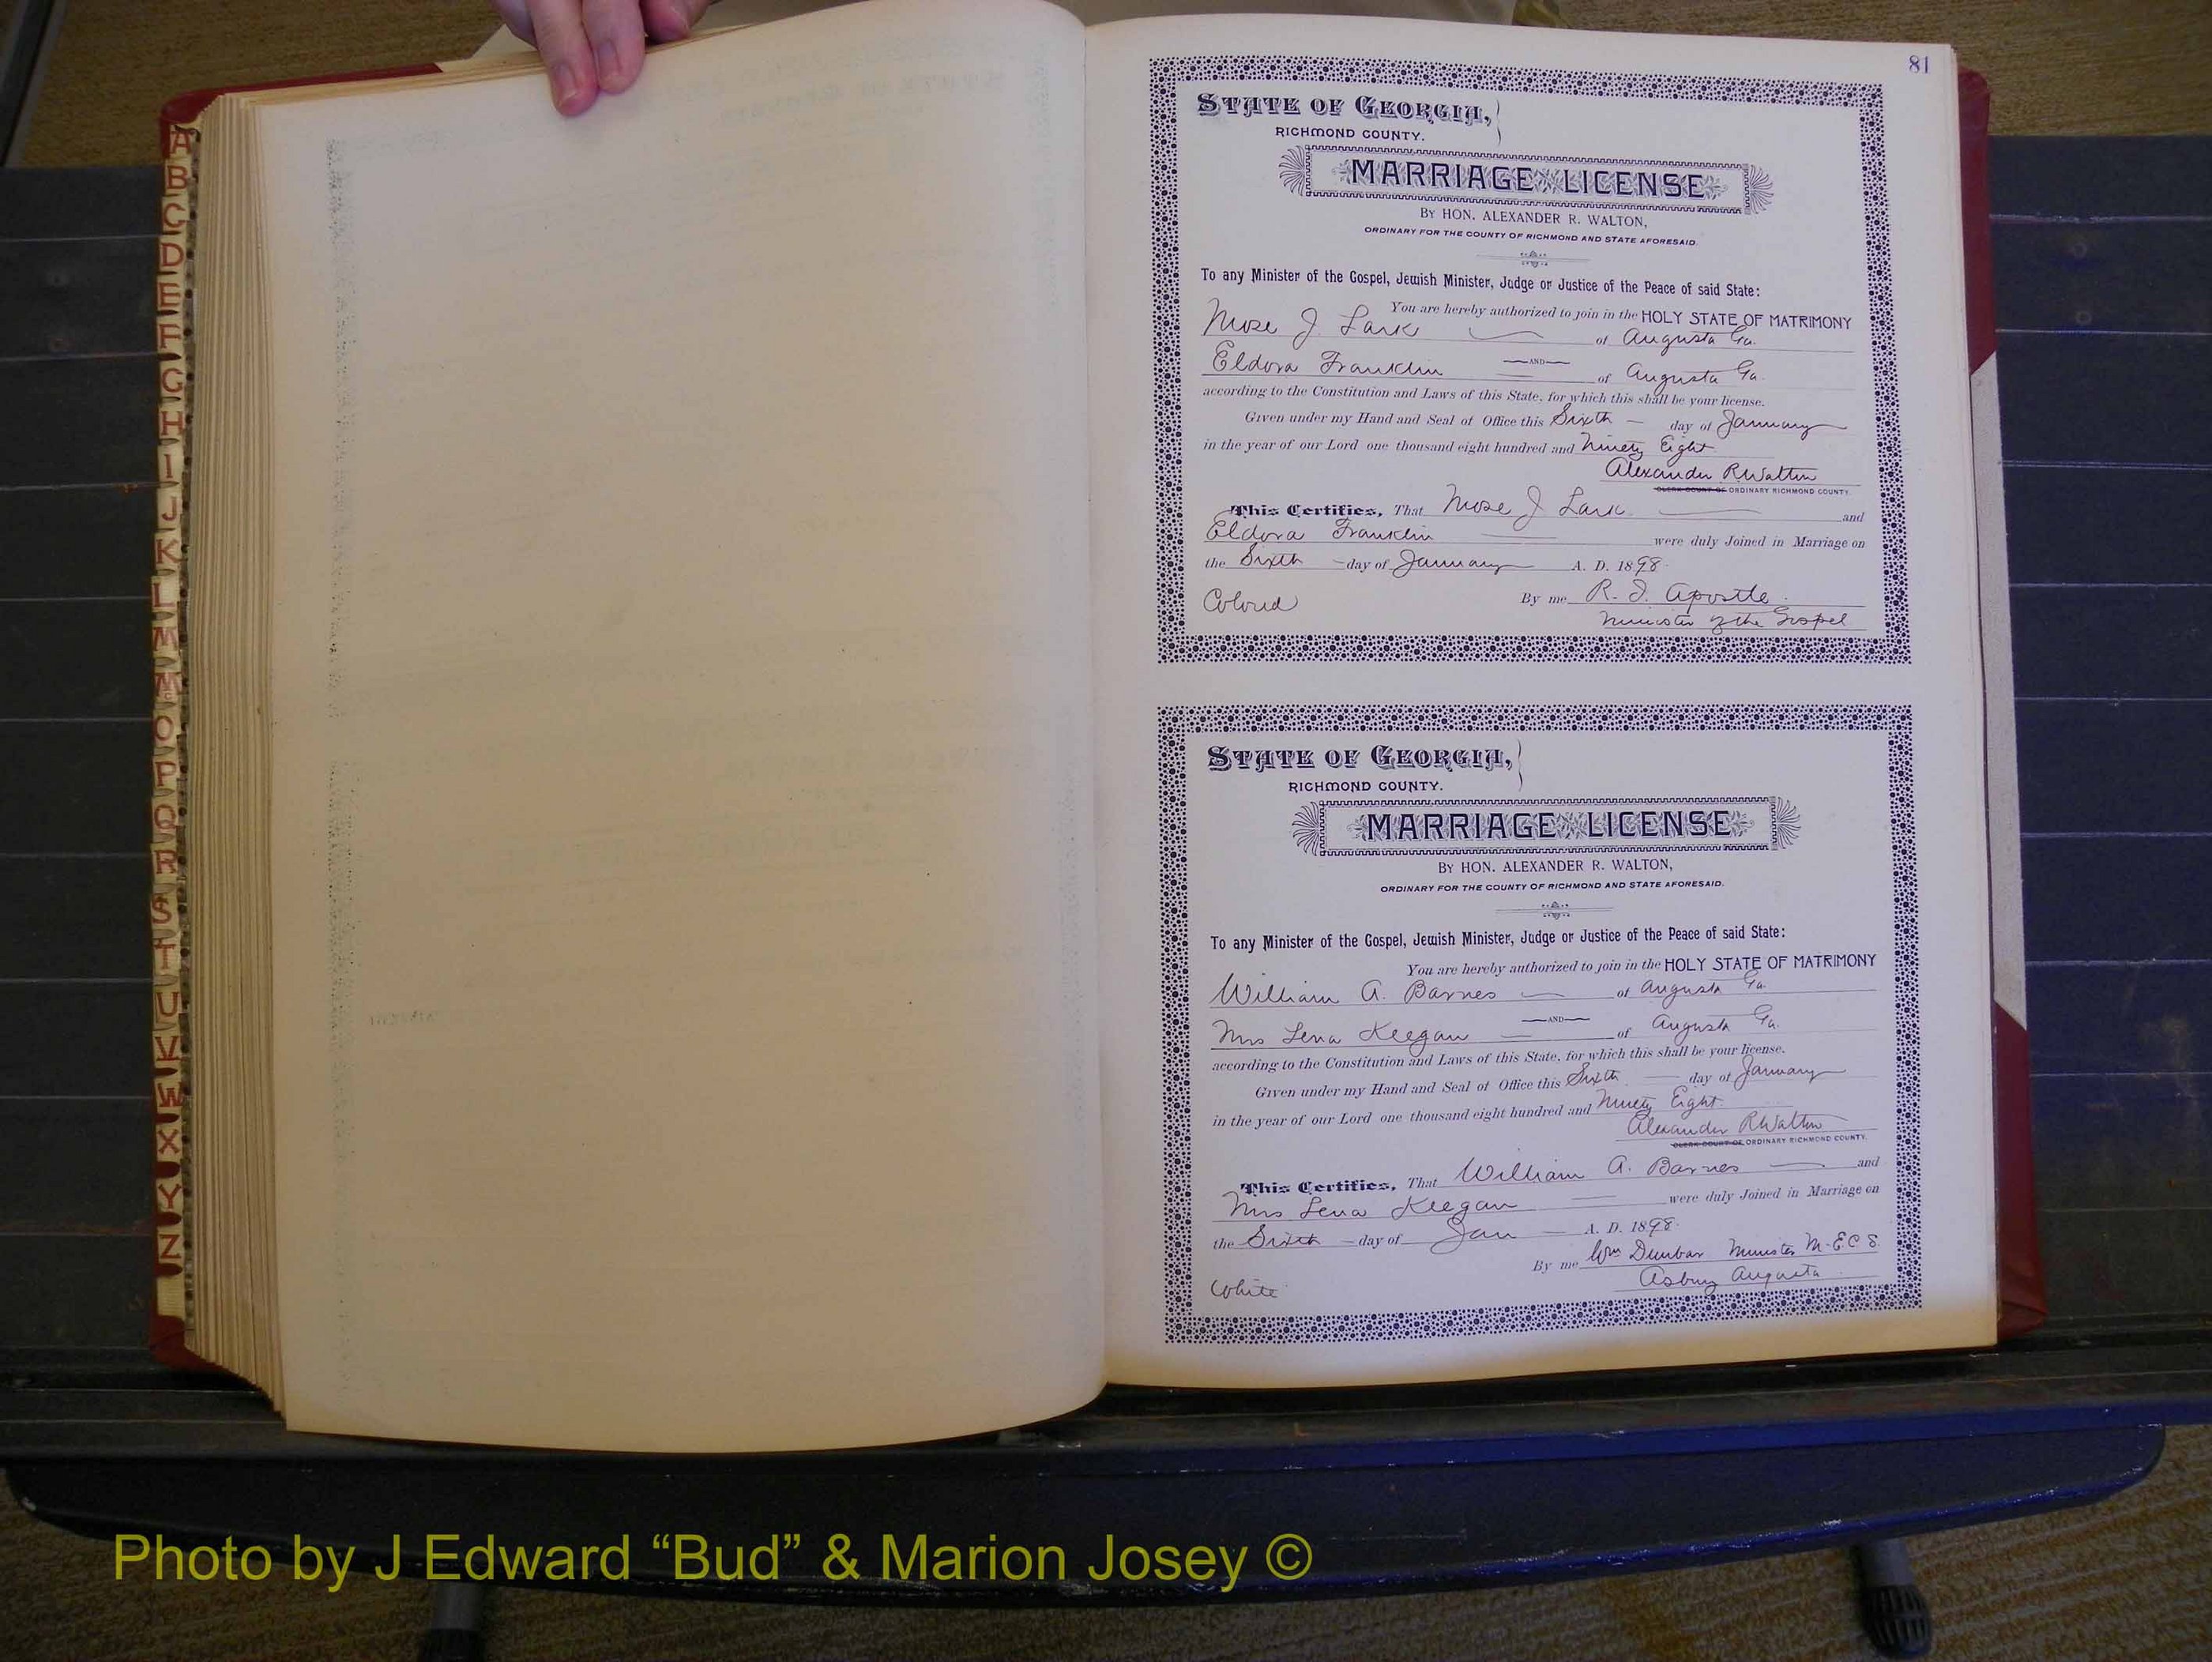 81
A
B
C
D
E
F
G
H
I
J
K
L
M
Mc
O
P
Q
R
S
T
U
V
W
X
Y
Z
STATE OF GEORGIA,
RICHMOND COUNTY.
MARRIAGE LICENSE
BY HON. ALEXANDER R. WALTON,
ORDINARY FOR THE COUNTY OF RICHMOND AND STATE AFORESAID.
To any Minister of the Gospel, Jewish Minister, Judge or Justice of the Peace of said State:
You are hereby authorized to join in the HOLY STATE OF MATRIMONY
Mose J. Lark of Augusta Ga.
AND
Eldora Franklin of Augusta Ga.
according to the Constitution and Laws of this State, for which this shall be your license.
Given under my Hand and Seal of Office this Sixth day of January
in the year of our Lord one thousand eight hundred and Ninety Eight
Alexander R Walton
CLERK COURT OF ORDINARY RICHMOND COUNTY.
This Certifies, That Mose J Lark and
Eldora Franklin were duly Joined in Marriage on
the Sixth day of January A. D. 1898.
Colored By me R. J. Apostle.
Minister of the Gospel
STATE OF GEORGIA,
RICHMOND COUNTY.
MARRIAGE LICENSE
BY HON. ALEXANDER R. WALTON,
ORDINARY FOR THE COUNTY OF RICHMOND AND STATE AFORESAID.
To any Minister of the Gospel, Jewish Minister, Judge or Justice of the Peace of said State:
You are hereby authorized to join in the HOLY STATE OF MATRIMONY
William A. Barnes of Augusta Ga.
AND
Mrs Lena Keegan of Augusta Ga.
according to the Constitution and Laws of this State, for which this shall be your license.
Given under my Hand and Seal of Office this Sixth day of January
in the year of our Lord one thousand eight hundred and Ninety Eight
Alexander R Walton
CLERK COURT OF ORDINARY RICHMOND COUNTY.
This Certifies, That William A. Barnes and
Mrs Lena Keegan were duly Joined in Marriage on
the Sixth day of Jan A. D. 1898.
By me Wm Dunbar Minister M.E.C.S.
White Asbury Augusta
Photo by J Edward “Bud” & Marion Josey ©